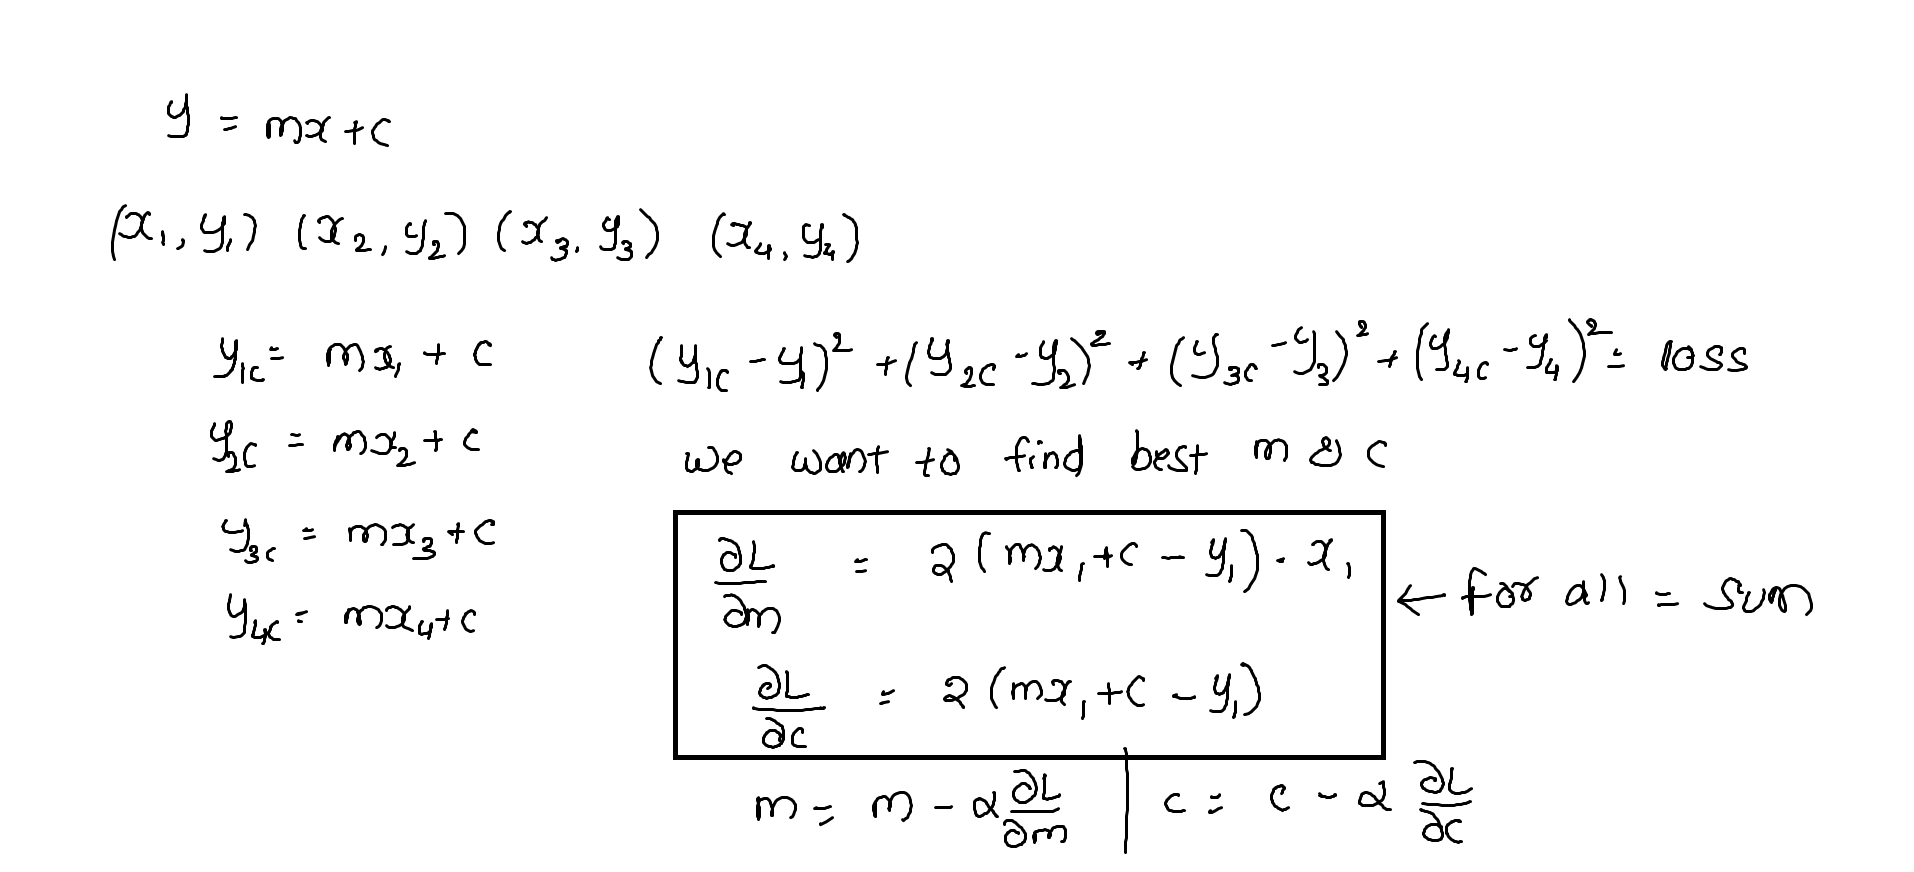 y = mx + c
(x₁, y₁) (x₂, y₂) (x₃, y₃) (x₄, y₄)
y₁c = mx₁ + c
y₂c = mx₂ + c
y₃c = mx₃ + c
y₄c = mx₄ + c
(y₁c - y₁)² + (y₂c - y₂)² + (y₃c - y₃)² + (y₄c - y₄)² = loss
we want to find best m & c
∂L/∂m = 2(mx₁ + c - y₁) · x₁
∂L/∂c = 2(mx₁ + c - y₁)
← for all = sum
m = m - α ∂L/∂m | c = c - α ∂L/∂c